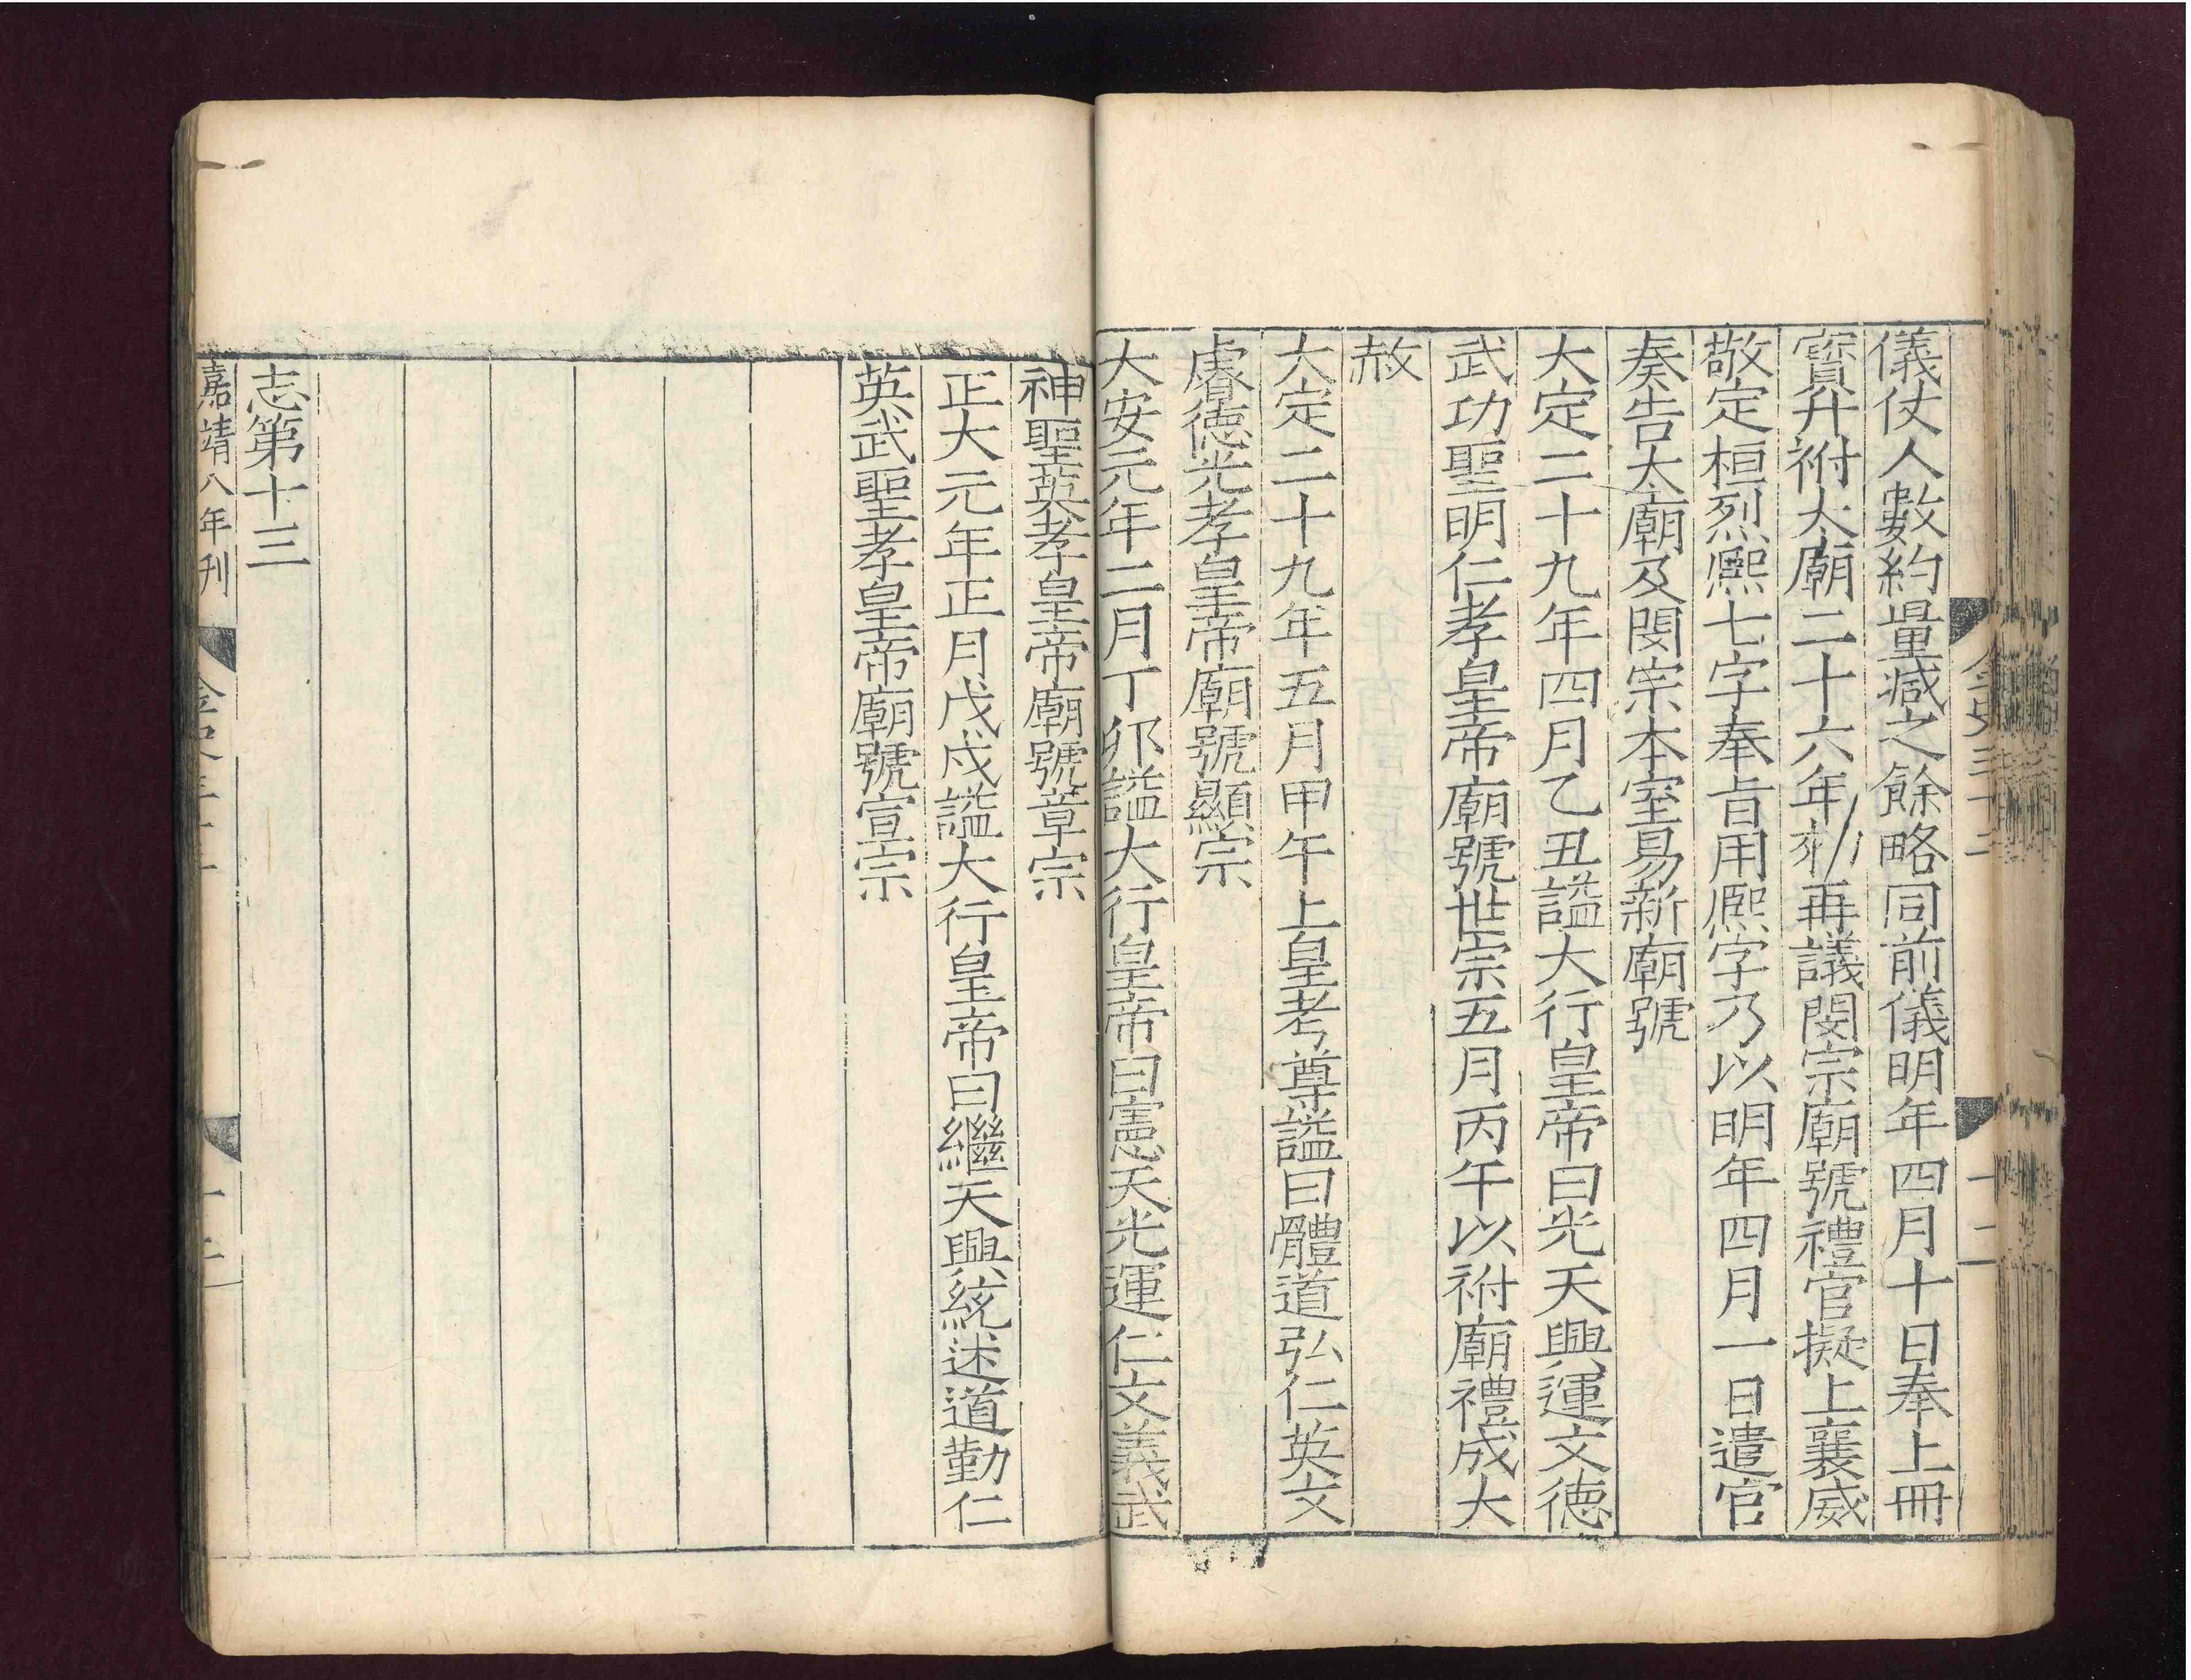 金史三十二
十二
儀仗人數約量减之餘略同前儀明年四月十日奉上冊
寳升祔太廟二十六年
再議閔宗廟號禮官擬上襄威
敬定桓烈熈七字奉旨用熈字乃以明年四月一日遣官
奏告太廟及閔宗本室易新廟號
大定二十九年四月乙丑謚大行皇帝曰光天興運文德
武功聖明仁孝皇帝廟號世宗五月丙午以祔廟禮成大
赦
大定二十九年五月甲午上皇考尊謚曰體道弘仁英文
睿德光孝皇帝廟號顯宗
大安元年二月丁卯謚大行皇帝曰憲天光運仁文義武
神聖英孝皇帝廟號章宗
正大元年正月戊戌謚大行皇帝曰繼天興統述道勤仁
英武聖孝皇帝廟號宣宗
志第十三
嘉靖八年刊